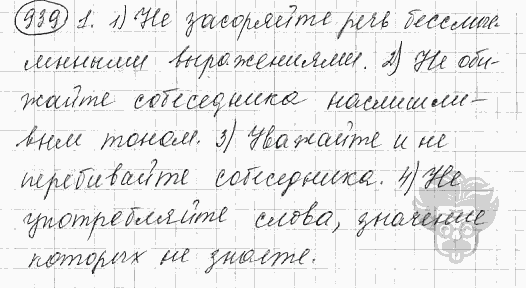 939 1. 1) Не засоряйте речь бессмыс-
ленными выражениями. 2) Не оби-
жайте собеседника насмешли-
вым тоном. 3) Уважайте и не
перебивайте собеседника. 4) Не
употребляйте слова, значение
которых не знаете.